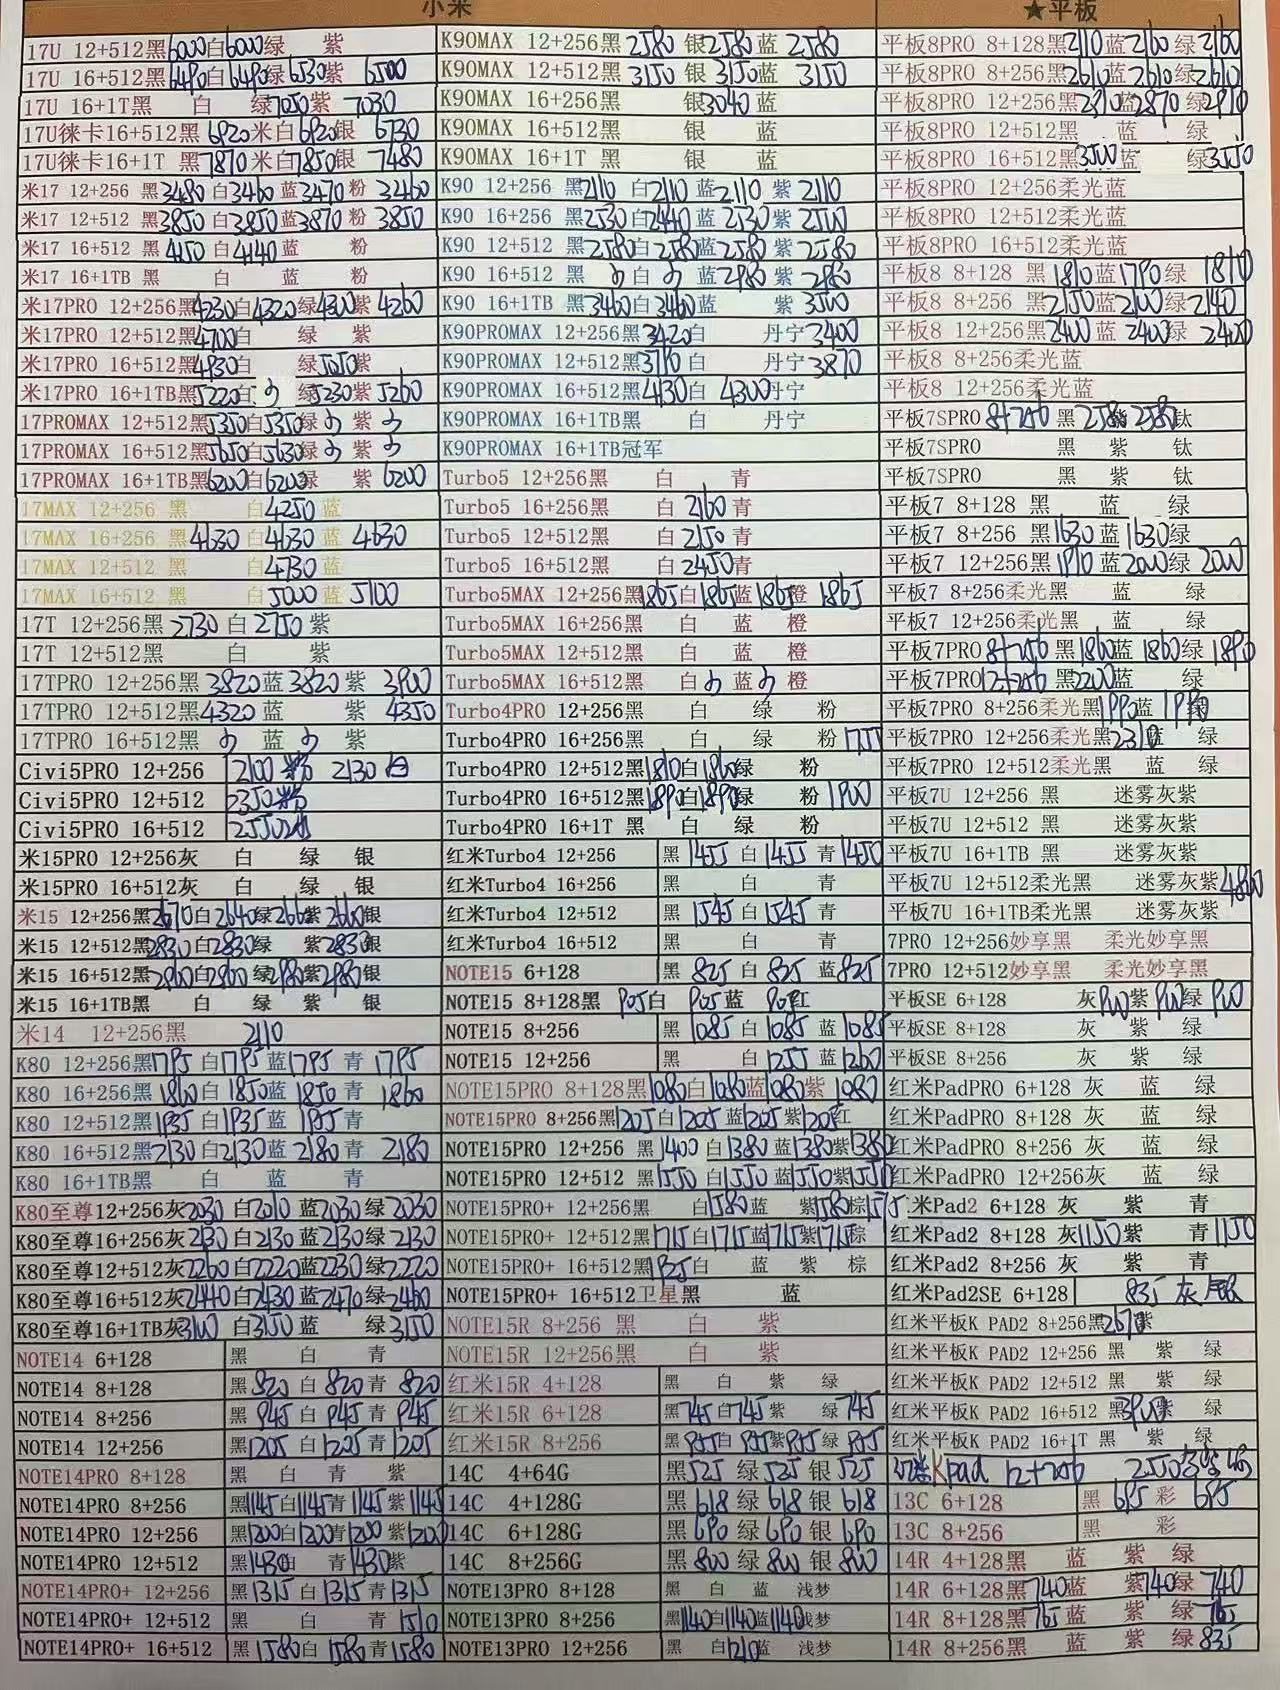 小米
17U 12+512黑6000白6000绿 紫
17U 16+512黑6490白6490绿6530紫 6500
17U 16+1T黑 白 绿7050紫 7030
17U徕卡16+512黑 6920米白6920银 6730
17U徕卡16+1T 黑7870米白7850银 7480
米17 12+256 黑3480白3460蓝3470粉 3460
米17 12+512 黑3850白3850蓝3870粉 3850
米17 16+512 黑4150白4140蓝 粉
米17 16+1TB 黑 白 蓝 粉
米17PRO 12+256黑4230白4320绿4300紫 4260
米17PRO 12+512黑4700白 绿 紫
米17PRO 16+512黑4930白 绿5050紫
米17PRO 16+1TB黑5220白 绿5230紫5260
17PROMAX 12+512黑5350白5350绿 紫
17PROMAX 16+512黑5650白5630绿 紫
17PROMAX 16+1TB黑6200白6200绿 紫 6200
17MAX 12+256 黑 白4250蓝
17MAX 16+256 黑4630白4630蓝 4630
17MAX 12+512 黑 白4730蓝
17MAX 16+512 黑 白5000蓝 5100
17T 12+256黑 2730 白 2750 紫
17T 12+512黑 白 紫
17TPRO 12+256黑3820蓝3820紫 3900
17TPRO 12+512黑4320蓝 紫 4350
17TPRO 16+512黑 蓝 紫
Civi5PRO 12+256 2100粉 2130白
Civi5PRO 12+512 2350粉
Civi5PRO 16+512 2550
米15PRO 12+256灰 白 绿 银
米15PRO 16+512灰 白 绿 银
米15 12+256黑2670白2640绿2660紫2660银
米15 12+512黑2830白2830绿 紫2830银
米15 16+512黑2960白2900绿2980紫2980银
米15 16+1TB黑 白 绿 紫 银
米14 12+256黑 2110
K80 12+256黑1795白1795蓝1795青 1795
K80 16+256黑1860白1850蓝1850青 1860
K80 12+512黑1935白1935蓝1955青
K80 16+512黑2130白2130蓝2180青 2180
K80 16+1TB黑 白 蓝 青
K80至尊12+256灰2030白2010蓝2030绿2030
K80至尊16+256灰2130白2130蓝2130绿2130
K80至尊12+512灰2260白2220蓝2230绿2220
K80至尊16+512灰2440白2430蓝2470绿2460
K80至尊16+1TB灰3100白3150蓝 绿3150
NOTE14 6+128 黑 白 青
NOTE14 8+128 黑820白820青820
NOTE14 8+256 黑945白945青945
NOTE14 12+256 黑1205白1205青1205
NOTE14PRO 8+128 黑 白 青 紫
NOTE14PRO 8+256 黑1145白1145青1145紫1145
NOTE14PRO 12+256 黑1200白1200青1200紫1200
NOTE14PRO 12+512 黑1430白 青1430紫
NOTE14PRO+ 12+256 黑1315白1315青1315
NOTE14PRO+ 12+512 黑 白 青1510
NOTE14PRO+ 16+512 黑1580白1580青1580
K90MAX 12+256黑2580银2580蓝2580
K90MAX 12+512黑3150银3150蓝 3150
K90MAX 16+256黑 银3040蓝
K90MAX 16+512黑 银 蓝
K90MAX 16+1T 黑 银 蓝
K90 12+256 黑2110 白2110蓝2110紫2110
K90 16+256 黑2530白2440蓝2530紫2500
K90 12+512 黑2580白2580蓝2580紫2580
K90 16+512 黑 白 蓝2980紫2980
K90 16+1TB 黑3460白3460蓝 紫3500
K90PROMAX 12+256黑3420白 丹宁3400
K90PROMAX 12+512黑3710白 丹宁3870
K90PROMAX 16+512黑4130白 4300丹宁
K90PROMAX 16+1TB黑 白 丹宁
K90PROMAX 16+1TB冠军
Turbo5 12+256黑 白 青
Turbo5 16+256黑 白 2160青
Turbo5 12+512黑 白 2150青
Turbo5 16+512黑 白 2450青
Turbo5MAX 12+256黑1865白1865蓝1865橙1865
Turbo5MAX 16+256黑 白 蓝 橙
Turbo5MAX 12+512黑 白 蓝 橙
Turbo5MAX 16+512黑 白 蓝 橙
Turbo4PRO 12+256黑 白 绿 粉
Turbo4PRO 16+256黑 白 绿 粉1755
Turbo4PRO 12+512黑1810白1860绿 粉
Turbo4PRO 16+512黑1890白1890绿 粉1900
Turbo4PRO 16+1T 黑 白 绿 粉
红米Turbo4 12+256 黑1455白1455青1450
红米Turbo4 16+256 黑 白 青
红米Turbo4 12+512 黑1545白1545青
红米Turbo4 16+512 黑 白 青
NOTE15 6+128 黑825白825蓝825
NOTE15 8+128黑 905白 905蓝 905红
NOTE15 8+256 黑1085白1085蓝1085
NOTE15 12+256 黑 白1255蓝1260
NOTE15PRO 8+128黑1080白1080蓝1080紫1080
NOTE15PRO 8+256黑1205白1205蓝1205紫1205红
NOTE15PRO 12+256 黑1400白1380蓝1380紫1380
NOTE15PRO 12+512 黑1550白1550蓝1550紫1550
NOTE15PRO+ 12+256黑 白1580蓝 紫1580棕1575
NOTE15PRO+ 12+512黑1715白1715蓝1715紫1715棕
NOTE15PRO+ 16+512黑1925白 蓝 紫 棕
NOTE15PRO+ 16+512卫星黑 蓝
NOTE15R 8+256 黑 白 紫
NOTE15R 12+256黑 白 紫
红米15R 4+128 黑 白 紫 绿
红米15R 6+128 黑745白745紫 绿745
红米15R 8+256 黑955白955紫955绿955
14C 4+64G 黑525绿525银525
14C 4+128G 黑618绿618银618
14C 6+128G 黑690绿690银690
14C 8+256G 黑800绿800银800
NOTE13PRO 8+128 黑 白 蓝 浅梦
NOTE13PRO 8+256 黑1140白1140蓝1140浅梦
NOTE13PRO 12+256 黑 白1210蓝 浅梦
★平板
平板8PRO 8+128黑2110蓝2160绿2160
平板8PRO 8+256黑2610蓝2610绿2610
平板8PRO 12+256黑2910蓝2870绿2910
平板8PRO 12+512黑 蓝 绿
平板8PRO 16+512黑3500蓝 绿3550
平板8PRO 12+256柔光蓝
平板8PRO 12+512柔光蓝
平板8PRO 16+512柔光蓝
平板8 8+128 黑1810蓝1790绿1810
平板8 8+256 黑2150蓝2100绿2140
平板8 12+256黑2400蓝2400绿2400
平板8 8+256柔光蓝
平板8 12+256柔光蓝
平板7SPRO 8+256 黑 2580紫2580钛
平板7SPRO 黑 紫 钛
平板7SPRO 黑 紫 钛
平板7 8+128 黑 蓝 绿
平板7 8+256 黑1630蓝1630绿
平板7 12+256黑1910蓝2000绿2000
平板7 8+256柔光黑 蓝 绿
平板7 12+256柔光黑 蓝 绿
平板7PRO 8+256 黑1860蓝1860绿1890
平板7PRO12+256黑2200蓝 绿
平板7PRO 8+256柔光黑1990蓝1990绿
平板7PRO 12+256柔光黑2310蓝 绿
平板7PRO 12+512柔光黑 蓝 绿
平板7U 12+256 黑 迷雾灰紫
平板7U 12+512 黑 迷雾灰紫
平板7U 16+1TB 黑 迷雾灰紫
平板7U 12+512柔光黑 迷雾灰紫4860
平板7U 16+1TB柔光黑 迷雾灰紫
7PRO 12+256妙享黑 柔光妙享黑
7PRO 12+512妙享黑 柔光妙享黑
平板SE 6+128 灰900紫900绿900
平板SE 8+128 灰 紫 绿
平板SE 8+256 灰 紫 绿
红米PadPRO 6+128 灰 蓝 绿
红米PadPRO 8+128 灰 蓝 绿
红米PadPRO 8+256 灰 蓝 绿
红米PadPRO 12+256灰 蓝 绿
红米Pad2 6+128 灰 紫 青
红米Pad2 8+128 灰1150紫 青1150
红米Pad2 8+256 灰 紫 青
红米Pad2SE 6+128 835 灰 银
红米平板K PAD2 8+256黑2670紫
红米平板K PAD2 12+256 黑 紫 绿
红米平板K PAD2 12+512 黑 紫 绿
红米平板K PAD2 16+512 黑3900紫 绿
红米平板K PAD2 16+1T 黑 紫 绿
Kpad 12+256 2550
13C 6+128 黑 695彩 695
13C 8+256 黑 彩
14R 4+128黑 蓝 紫 绿
14R 6+128黑740蓝 紫740绿740
14R 8+128黑765蓝 紫 绿765
14R 8+256黑 蓝 紫 绿835